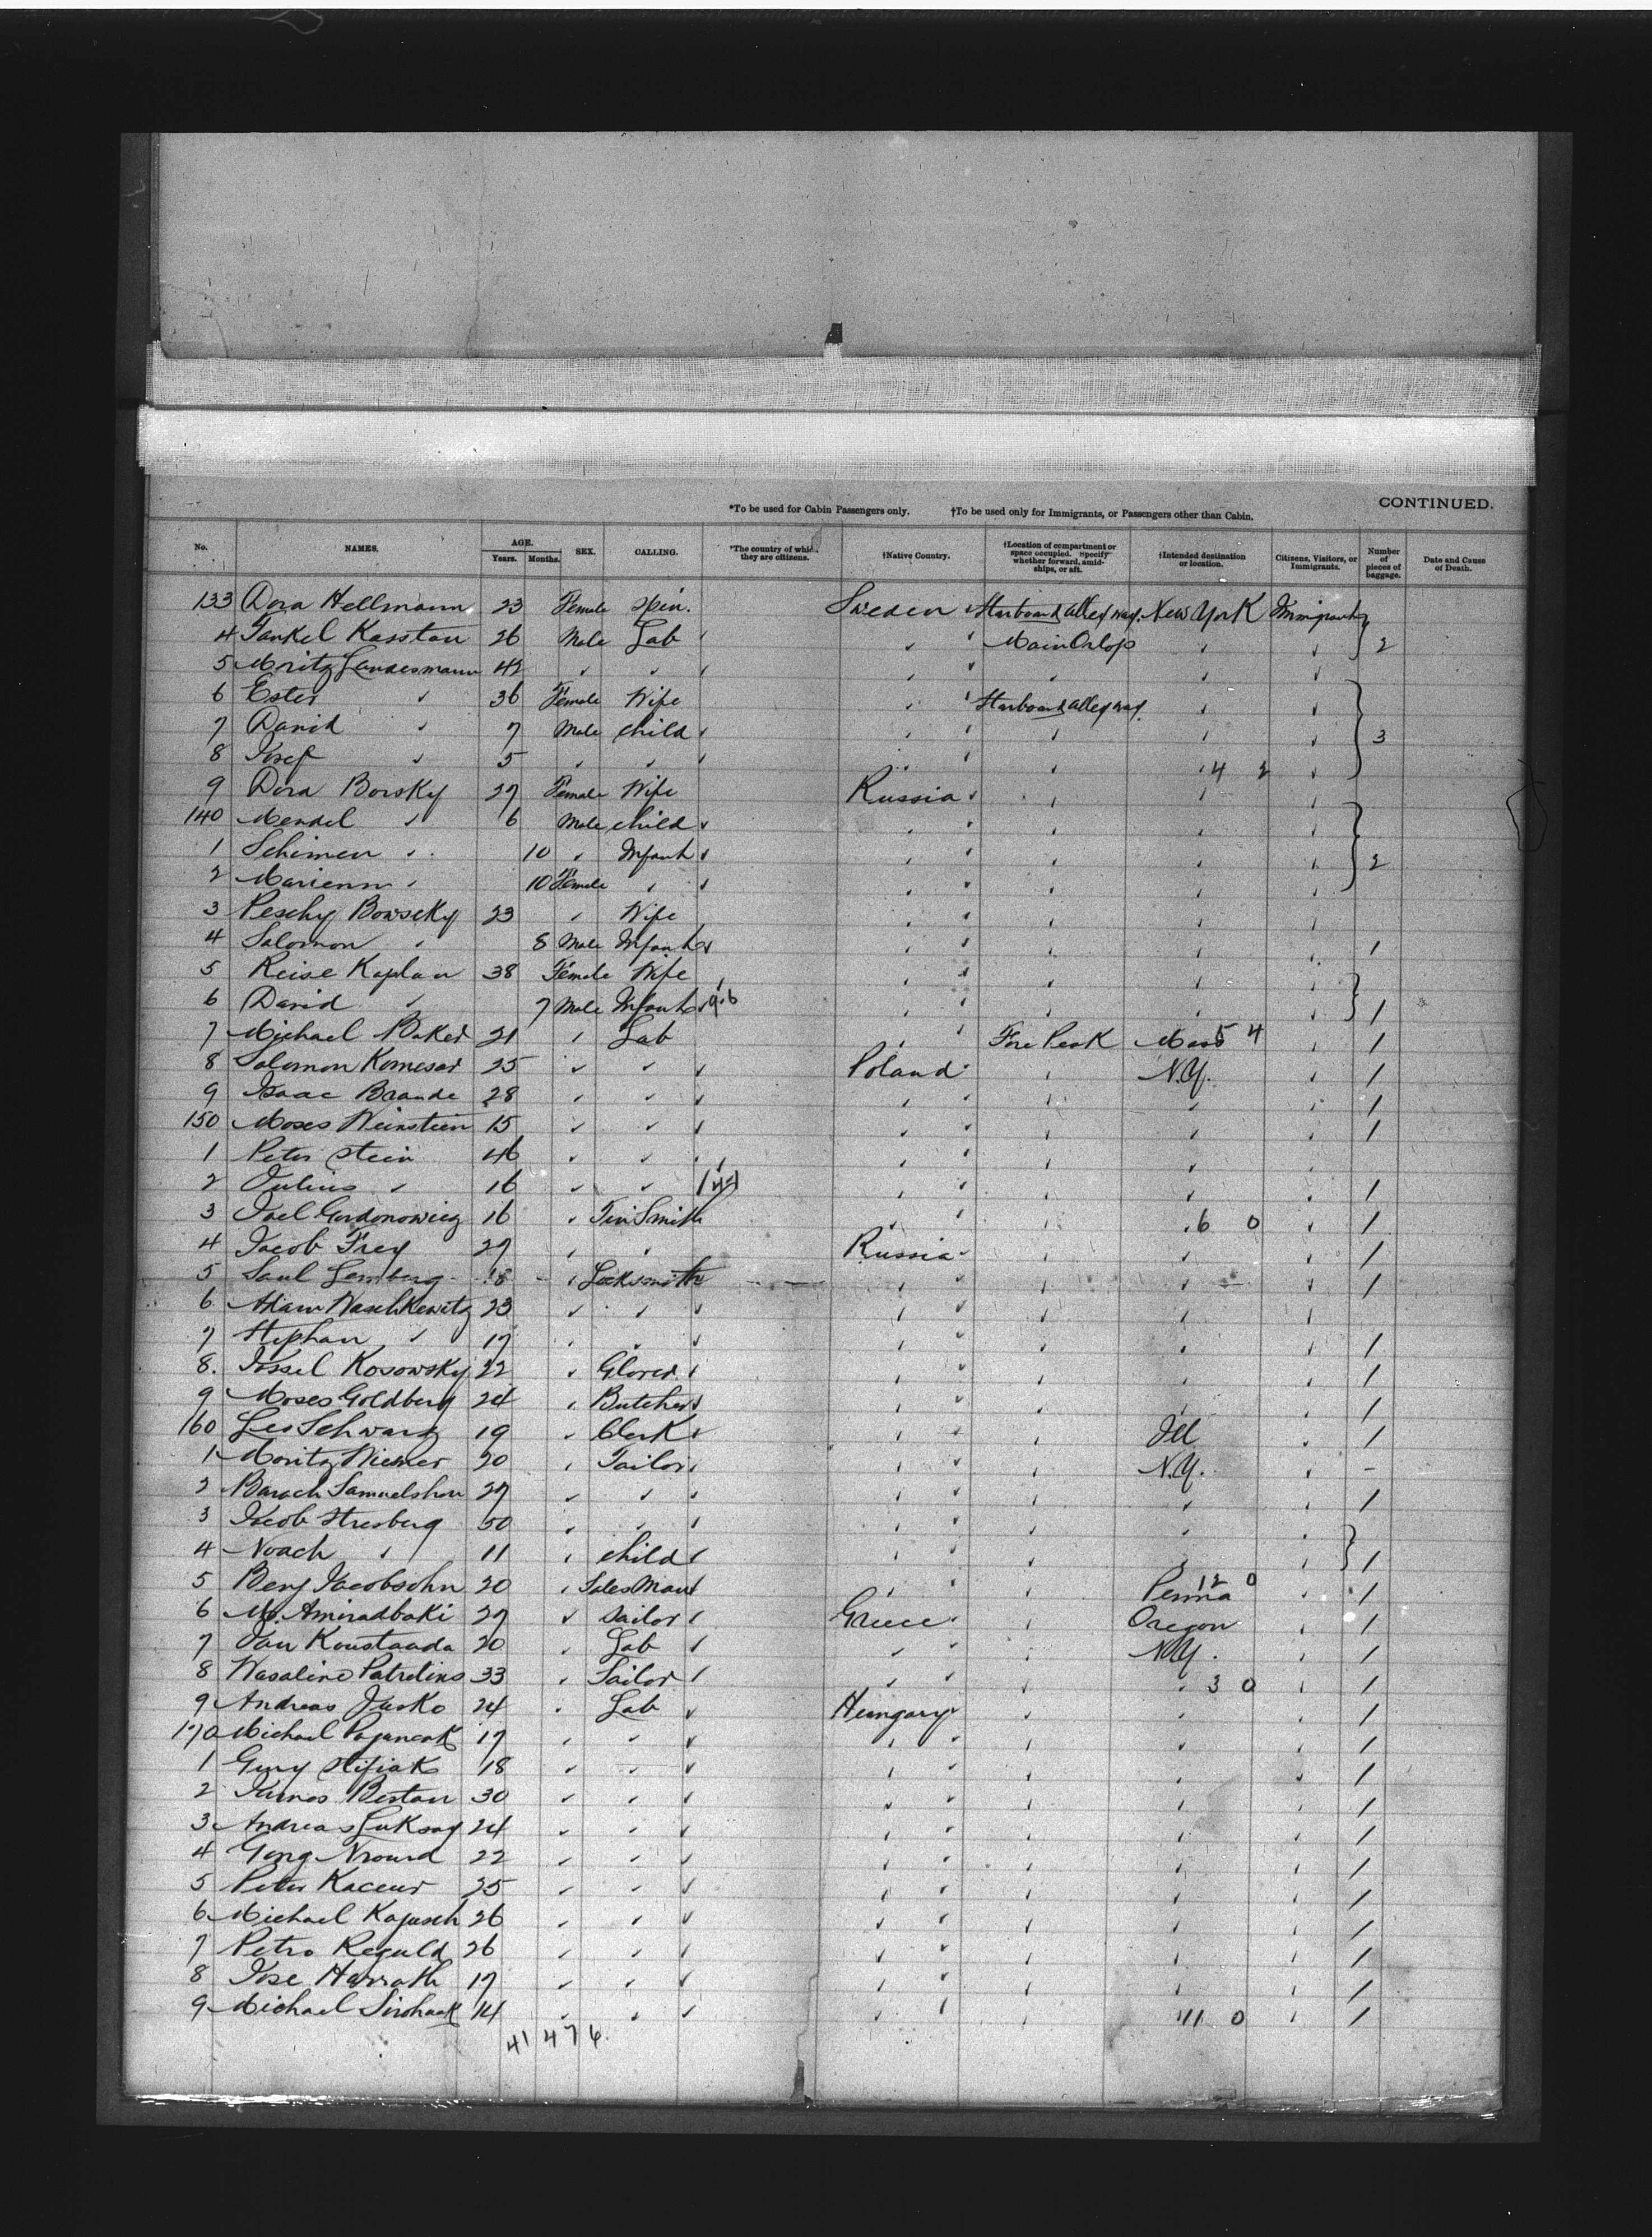 CONTINUED.
*To be used for Cabin Passengers only. †To be used only for Immigrants, or Passengers other than Cabin.
No. NAMES. AGE. Years. Months. SEX. CALLING. *The country of which they are citizens. †Native Country. †Location of compartment or space occupied. Specify whether forward, amidships, or aft. †Intended destination or location. Citizens, Visitors, or Immigrants. Number of pieces of baggage. Date and Cause of Death.
133 Dora Hellmann 23 Female Spin. Sweden Starboard alley way. New York Immigrant
4 Jankel Kasstan 26 Male Lab " " Main Orlop " " 2
5 Moritz Landesmann 42 " " " " " " "
6 Ester " 36 Female Wife " " Starboard alley way. " "
7 David " 7 Male child " " " " " 3
8 Josef " 5 " " " " " 4 2 "
9 Dora Borsky 27 Female Wife Russia " " " "
140 Mendel " 6 Male child " " " " "
1 Schimen " 10 " Infant " " " " " 2
2 " 10 Female " " " " " "
3 Peschy Bowscky 23 " Wife " " " " "
4 Salomon " 8 Male Infant " " " " " 1
5 Reise Kaplan 38 Female Wife " " " "
6 David " 7 Male Infant 9.6 " " " " 1
7 Michael Baker 21 " Lab " " Fore Peak Mass 5 4 " 1
8 Salomon Komesar 25 " " " Poland " " N.Y. " 1
9 Isaac Brande 28 " " " " " " " " 1
150 Moses Weinstein 15 " " " " " " " " 1
1 Peter Stein 46 " " " " " " " "
2 Julius " 16 " " " " " " " 1
3 Joel Gordonowicz 16 " Tin Smith " " " 6 0 " 1
4 Jacob Frey 27 " " Russia " " " " 1
5 Saul Lemberg 18 " Locksmith " " " " 1
6 Adam Waschkewitz 23 " " " " " " " "
7 Stephan " 17 " " " " " " " " 1
8. Jossel Kosowsky 22 " Glover " " " " " " 1
9 Moses Goldberg 24 " Butcher " " " " " " 1
160 Leo Schwarz 19 " Clerk " " " " Ill " 1
1 Moritz Wiesner 20 " Tailor " " " " N.Y. " –
2 Barach Samuelshon 27 " " " " " " " " 1
3 Jacob Stresberg 50 " " " " " " " "
4 Noach " 11 " child " " " " " " 1
5 Benj Jacobsohn 20 " Sales Man " " " Penna 12 0 " 1
6 M. Amiradbaki 27 " Sailor " Greece " " Oregon " 1
7 Jan Konstanda 20 " Lab " " " " N.Y. " 1
8 33 " Sailor " " " " " 3 0 " 1
9 Andreas Jusko 24 " Lab " Hungary " " " " 1
170 Michael 17 " " " " " " " " 1
1 18 " " " " " " " " 1
2 30 " " " " " " " " 1
3 Andreas Luksay 24 " " " " " " " " 1
4 22 " " " " " " " " 1
5 Peter Kaceur 25 " " " " " " " " 1
6 Michael Kapusch 26 " " " " " " " " 1
7 Petro Reguld 26 " " " " " " " " 1
8 17 " " " " " " " " 1
9 Michael 14 " " " " " " 11 0 " 1
41 4 7 6.